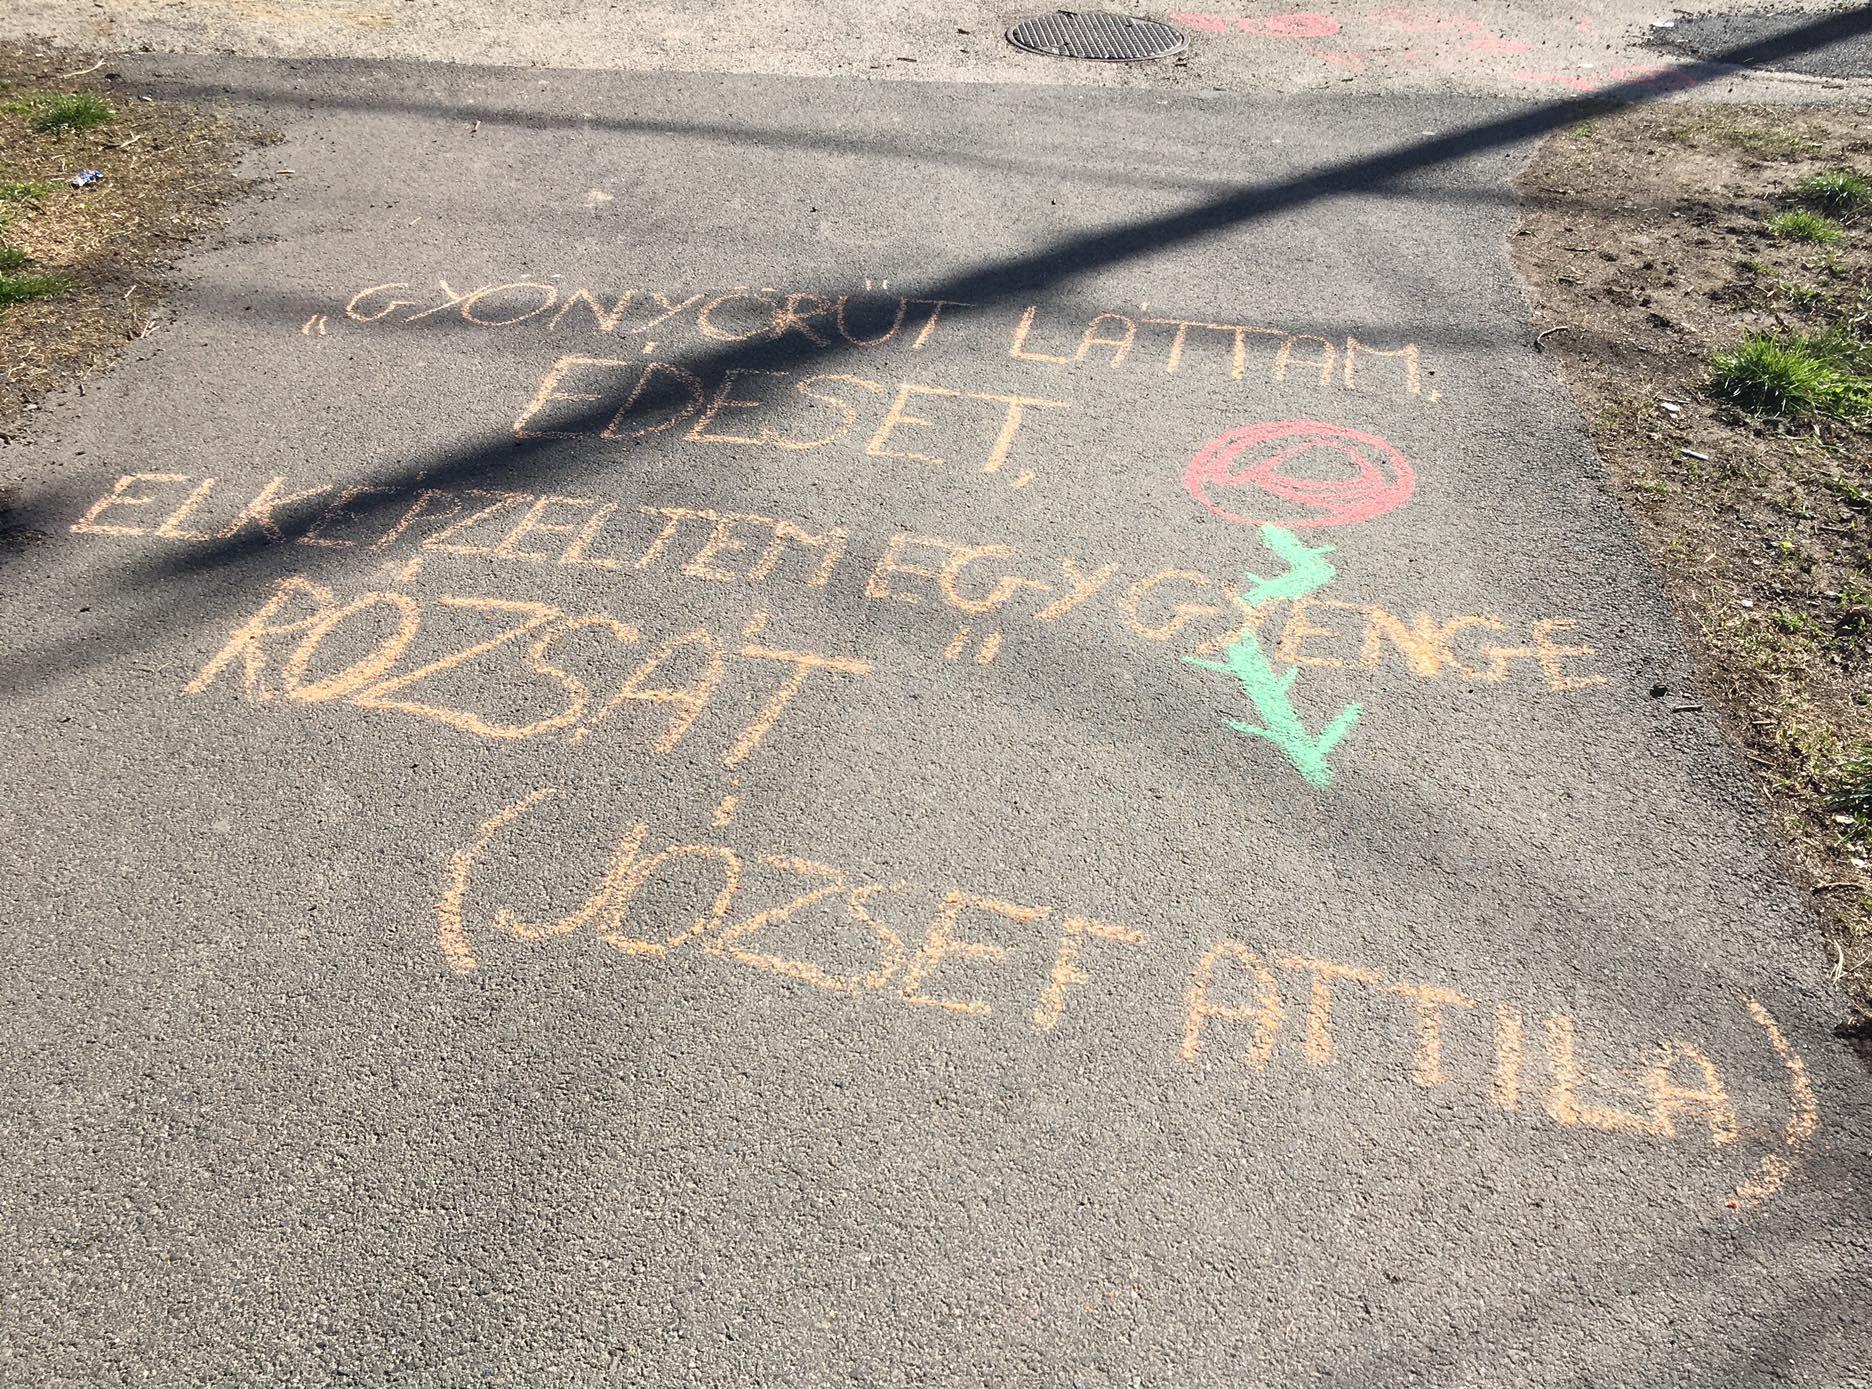 „GYÖNYÖRŰT LÁTTAM,
ÉDESET,
ELKÉPZELTEM EGY GYENGE
RÓZSÁT"
(JÓZSEF ATTILA)